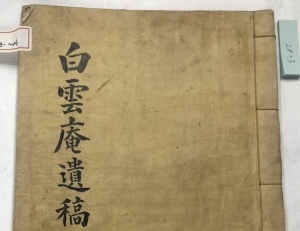 白雲庵遺稿